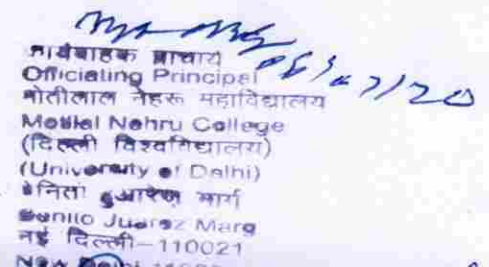 कार्यवाहक प्राचार्य
Officiating Principal
मोतीलाल नेहरू महाविद्यालय
Motilal Nehru College
(दिल्ली विश्वविद्यालय)
(University of Delhi)
मार्ग
Benito Juarez Marg
नई दिल्ली-110021
New Delhi